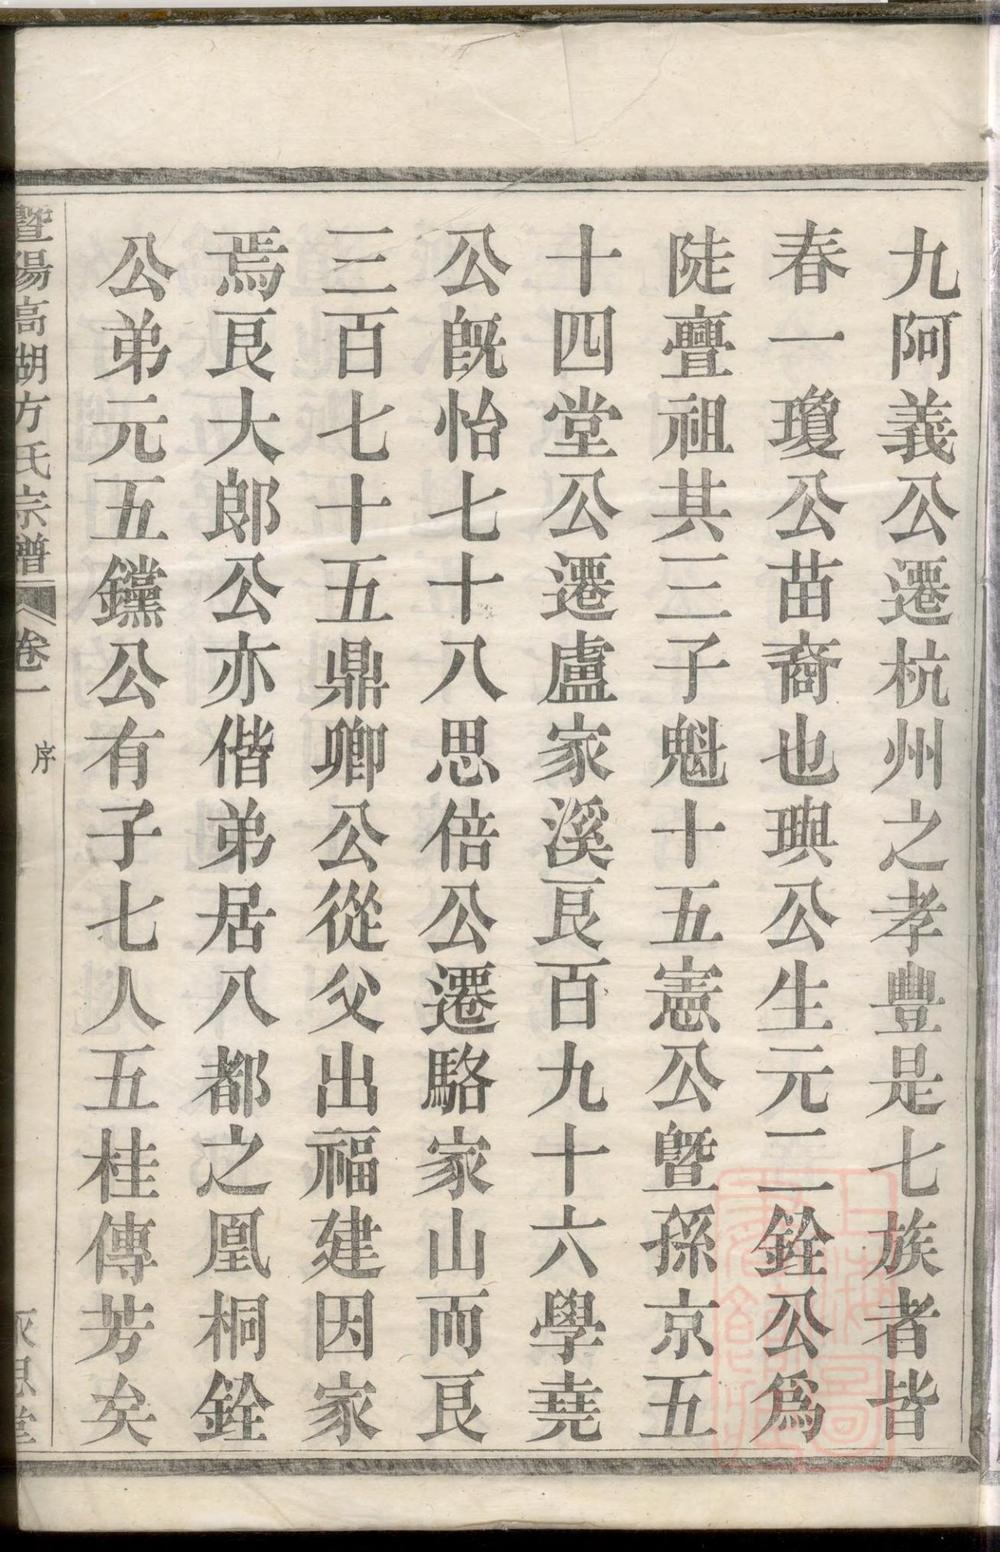 九阿義公遷杭州之孝豐是七族者皆
春一瓊公苗裔也璵公生元二銓公爲
陡亹祖其三子魁十五憲公曁孫京五
十四堂公遷盧家溪艮百九十六學堯
公旣怡七十八思倍公遷駱家山而艮
三百七十五鼎卿公從父出福建因家
焉艮大郎公亦偕弟居八都之凰桐銓
公弟元五钂公有子七人五桂傳芳矣
曁陽高湖方氏宗譜 卷一 序